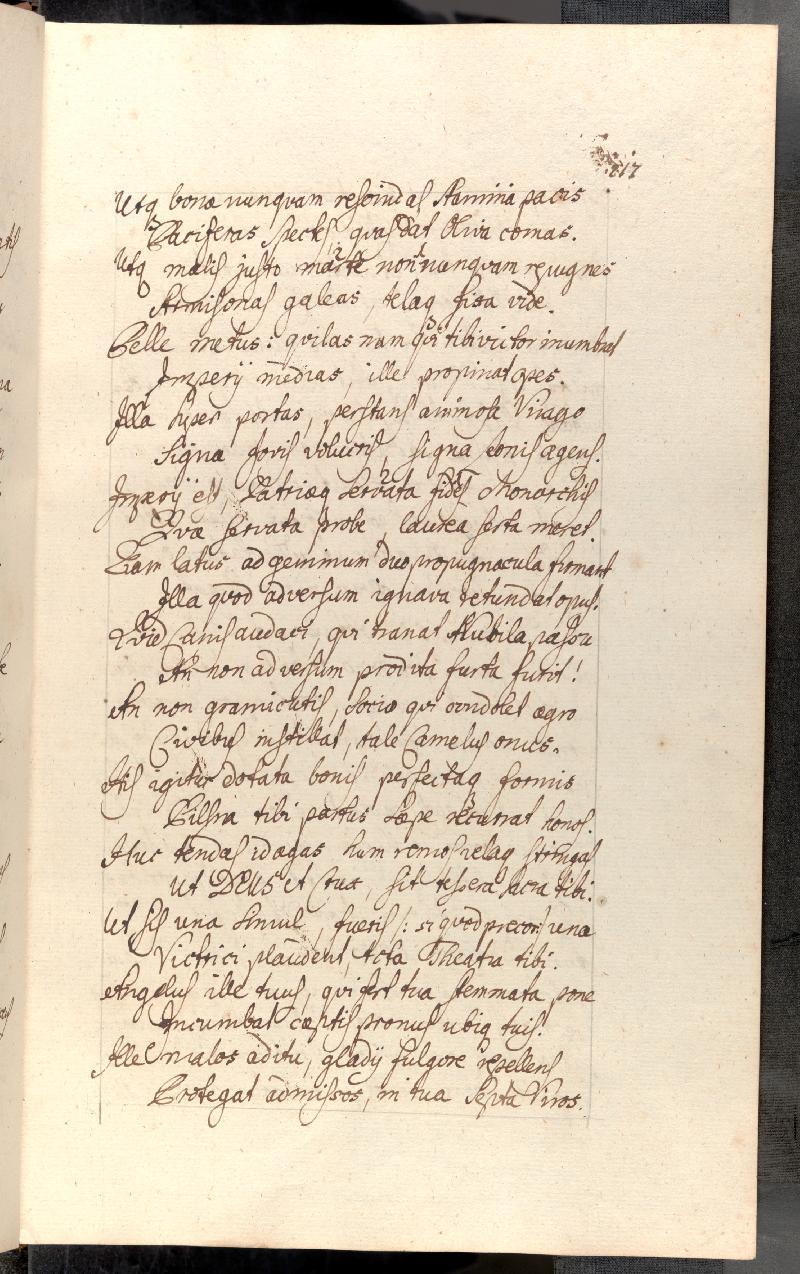 217
Utq bonæ nunquam rescindas stamina pacis
Paciferas spectes, quas dat Oliva comas.
Utq malis justo marte non nunquam repugnes
Armisonas galeas, telaq fixa vide.
Pelle metus: qvilas nam qvi tibi victor inumbrat
Imperij medias, ille propinat opes.
Illa super portas, perstans animosa Virago
Signa Jovis volucris, signa leonis agens.
Imperij est, Patriæq servata fides Monarchis
Qvæ servata probe, laurea serta meret.
Eam latus ad geminum duo propugnacula firmant
Illa qvod adversum ignava retundat opus.
Qvid Canis audaci, qvi tranat Nubila, passu
An non adversum prodita furta furit!
An non gramicutis, socio qvi condolet ægro
Civibus instillat, tale Camelus onus.
His igitur dotata bonis perfectaq formis
Pilsna tibi partus sæpe recurrat honos.
Huc tendas id agas hum remos velaq stringas
Ut DEUS et Crux, sit tessera sacra tibi.
Ut sis una simul, fueris /: si qvod precor :/ una
Victrici plaudent, tota Theatra tibi.
Angelus ille tuus, qvi fert tua stemmata pone
Incumbat cæptis pronus ubiq tuis!
Ille malos aditu, gladij fulgore repellens
Protegat admissos, in tua septa Viros.